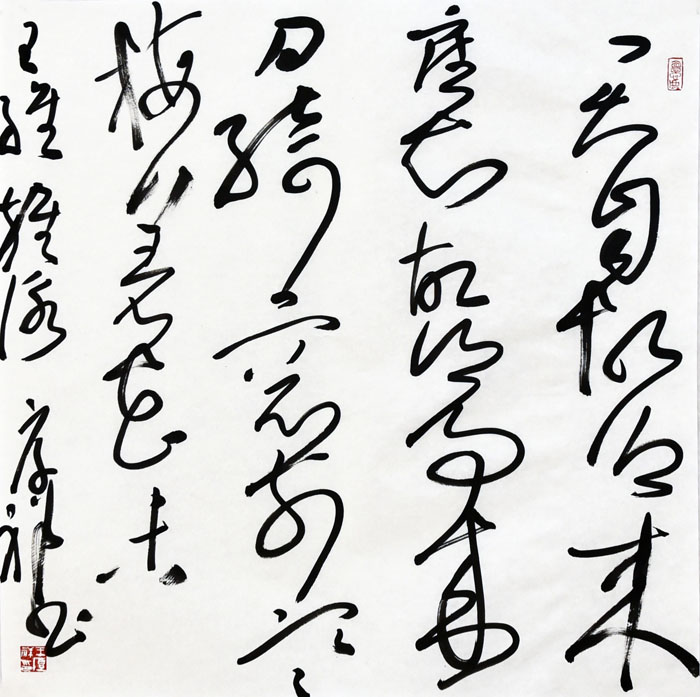 君自故鄉來
應知故鄉事來
日綺窗前寒
梅著花未
王維雜詠 厚祥書